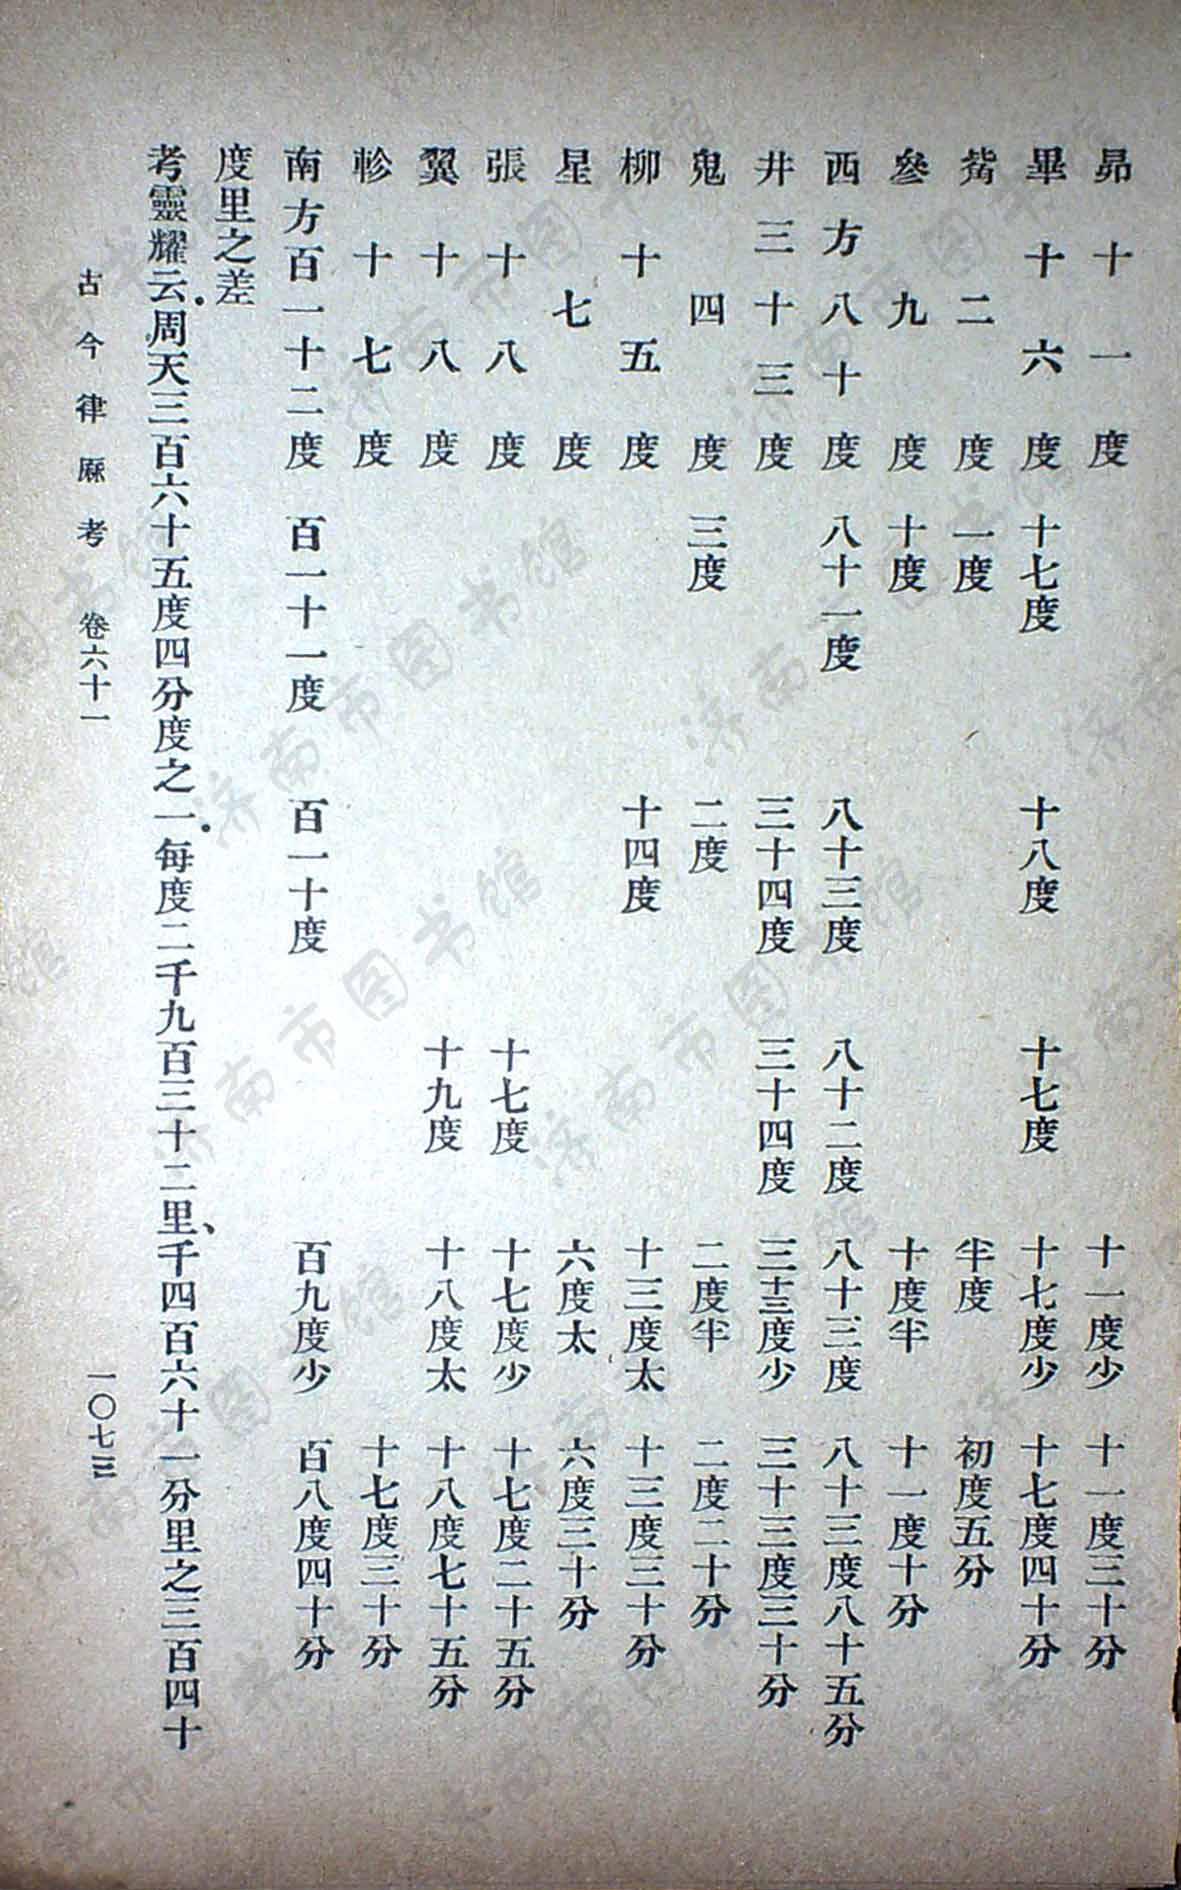 昴 十一度 十一度少 十一度三十分
畢 十六度 十七度 十八度 十七度 十七度少 十七度四十分
觜 二度 一度 半度 初度五分
參 九度 十度 十度半 十一度十分
西方八十度 八十一度 八十三度 八十二度 八十三度 八十三度八十五分
井 三十三度 三十四度 三十四度 三十三度少 三十三度三十分
鬼 四度 三度 二度 二度半 二度二十分
柳 十五度 十四度 十三度太 十三度三十分
星 七度 六度太 六度三十分
張 十八度 十七度 十七度少 十七度二十五分
翼 十八度 十九度 十八度太 十八度七十五分
軫 十七度 十七度三十分
南方百一十二度 百一十一度 百一十度 百九度少 百八度四十分
度里之差
考靈耀云.周天三百六十五度四分度之一.每度二千九百三十二里、千四百六十一分里之三百四十
古今律厤考 卷六十一 一〇七三
济南市图书馆